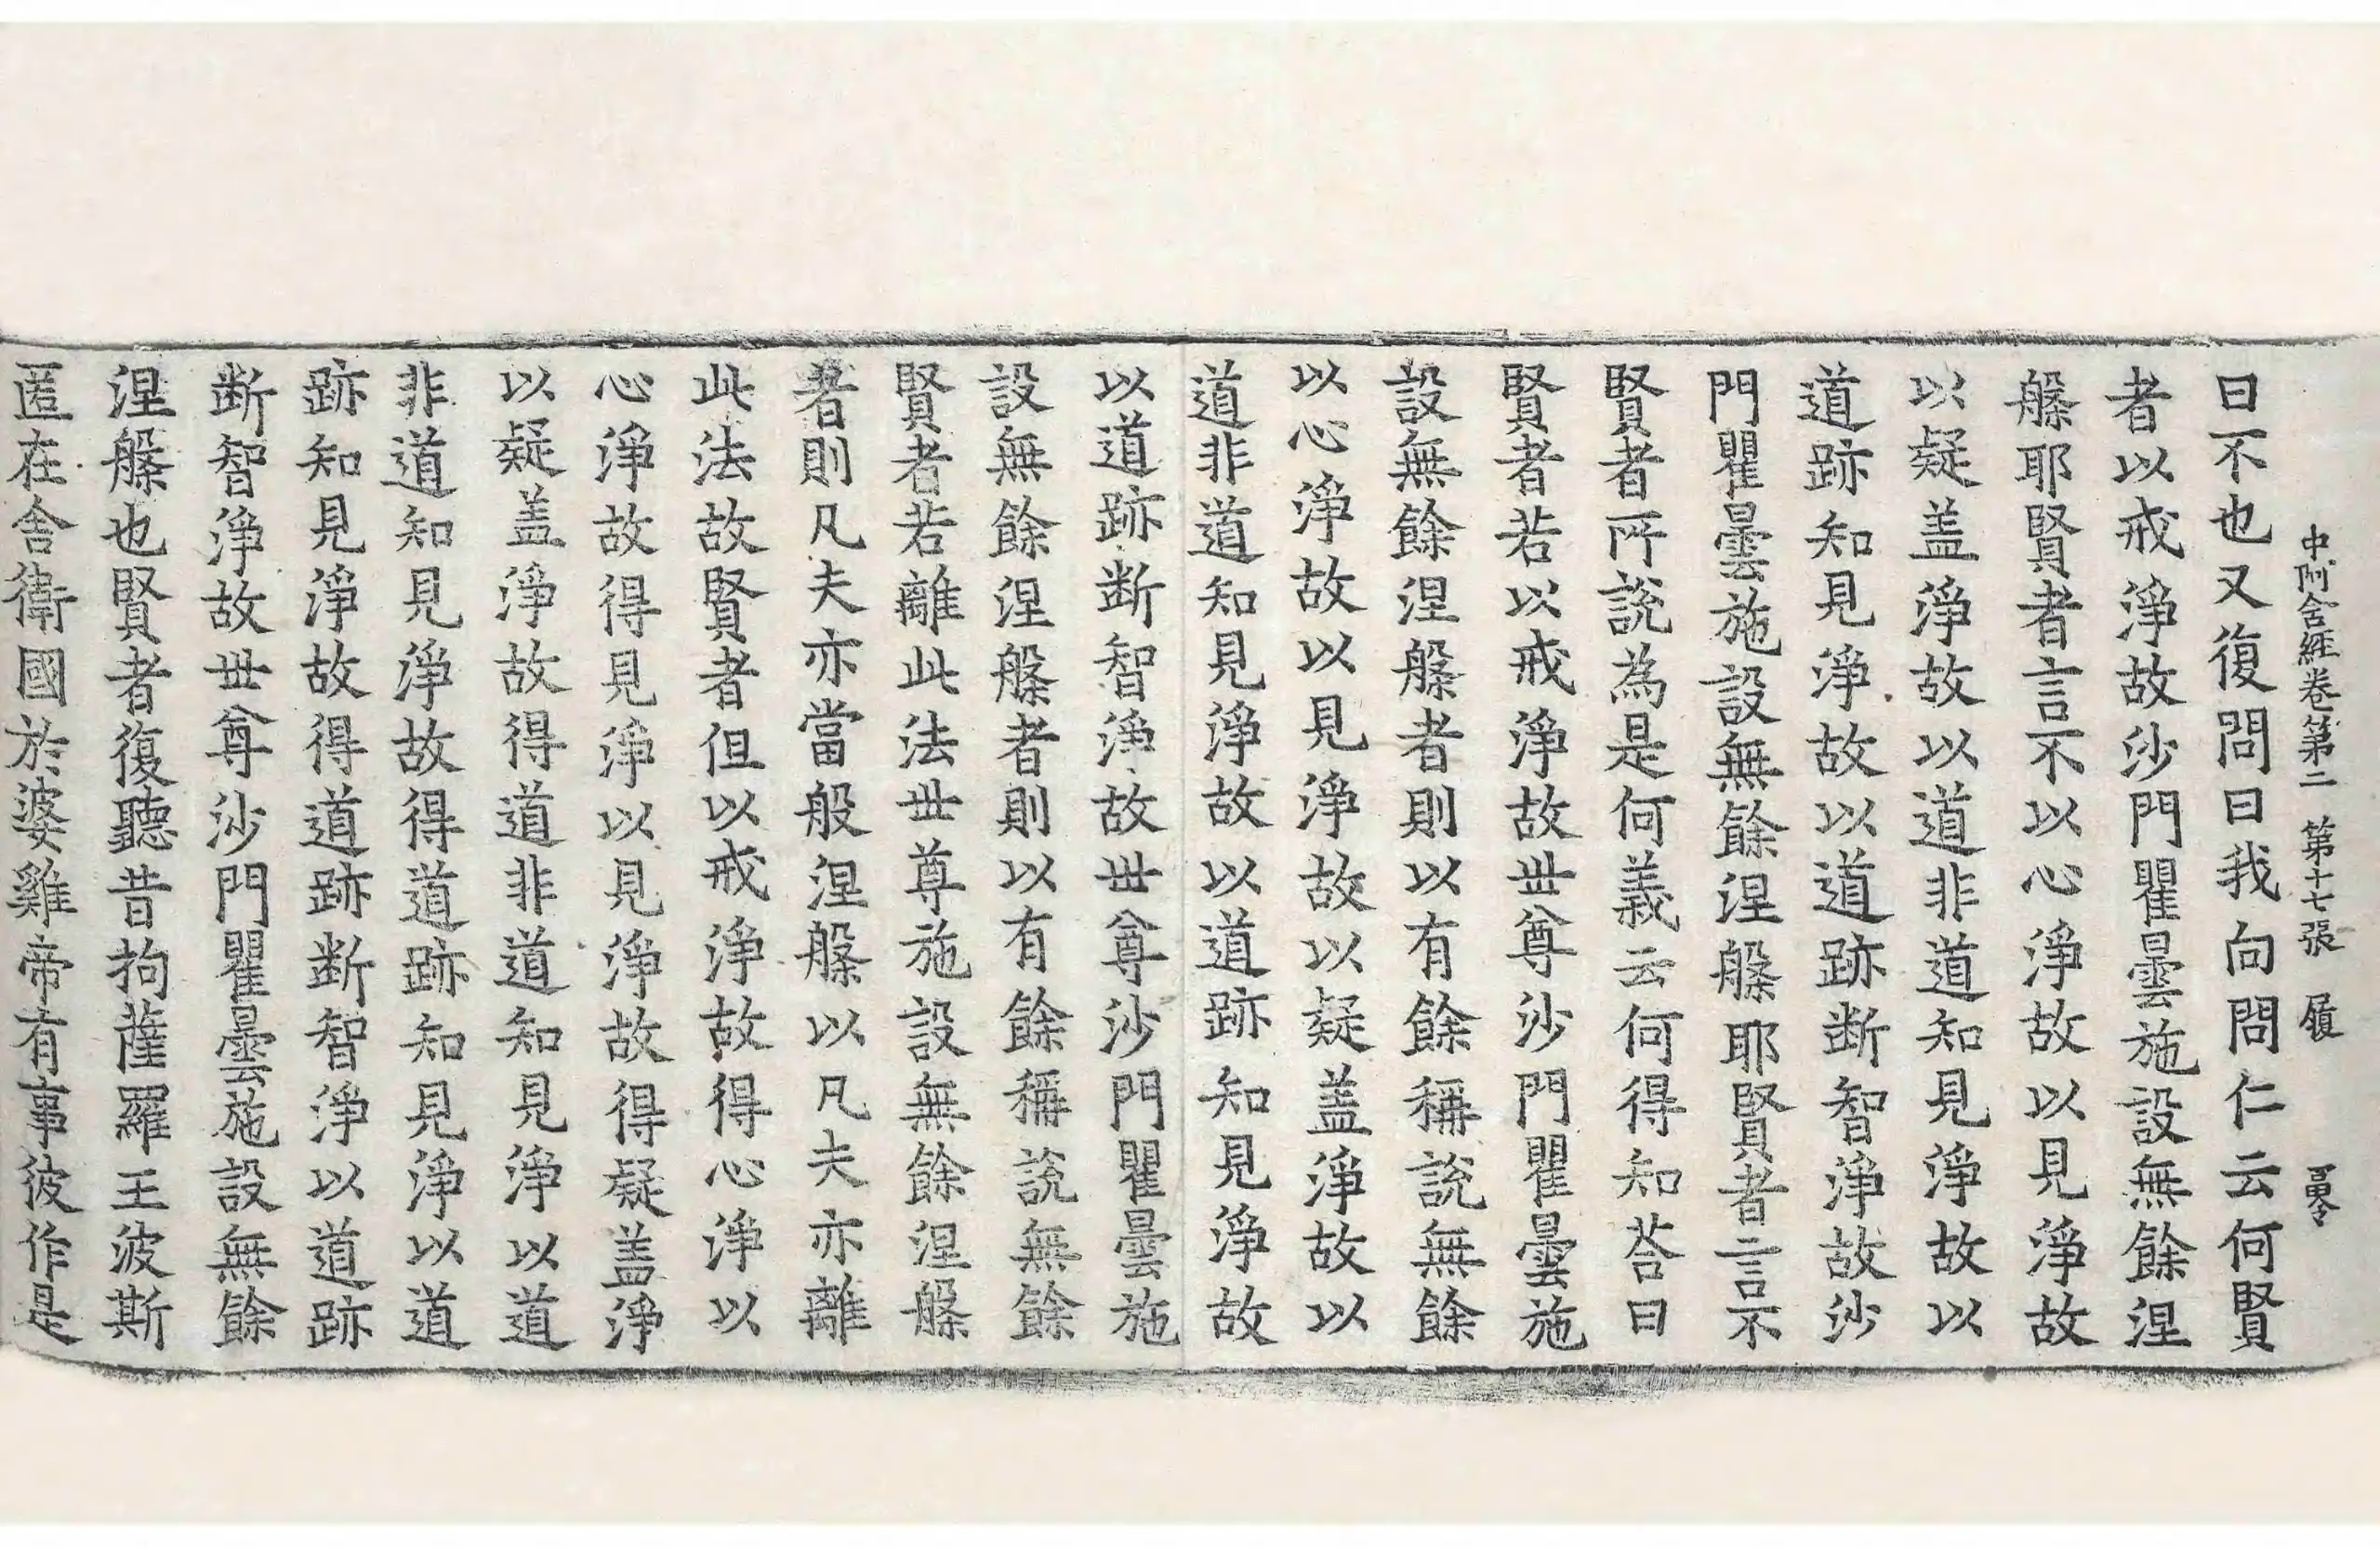 中阿含經卷第二　第十七張　履
曰不也又復問曰我向問仁云何賢
者以戒淨故沙門瞿曇施設無餘涅
槃耶賢者言不以心淨故以見淨故
以疑盖淨故以道非道知見淨故以
道跡知見淨故以道跡断智淨故沙
門瞿曇施設無餘涅槃耶賢者言不
賢者所說為是何義云何得知荅曰
賢者若以戒淨故世尊沙門瞿曇施
設無餘涅槃者則以有餘稱說無餘
以心淨故以見淨故以疑盖淨故以
道非道知見淨故以道跡知見淨故
以道跡断智淨故世尊沙門瞿曇施
設無餘涅槃者則以有餘稱說無餘
賢者若離此法世尊施設無餘涅槃
者則凡夫亦當般涅槃以凡夫亦離
此法故賢者但以戒淨故得心淨以
心淨故得見淨以見淨故得疑盖淨
以疑盖淨故得道非道知見淨以道
非道知見淨故得道跡知見淨以道
跡知見淨故得道跡断智淨以道跡
断智淨故世尊沙門瞿曇施設無餘
涅槃也賢者復聽昔拘薩羅王波斯
匿在舍衛國於婆雞帝有事彼作是